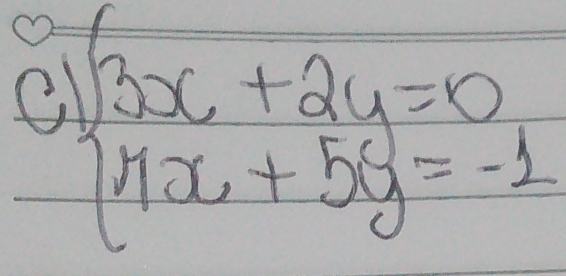 c) { 3x + 2y = 0
7x + 5y = -1